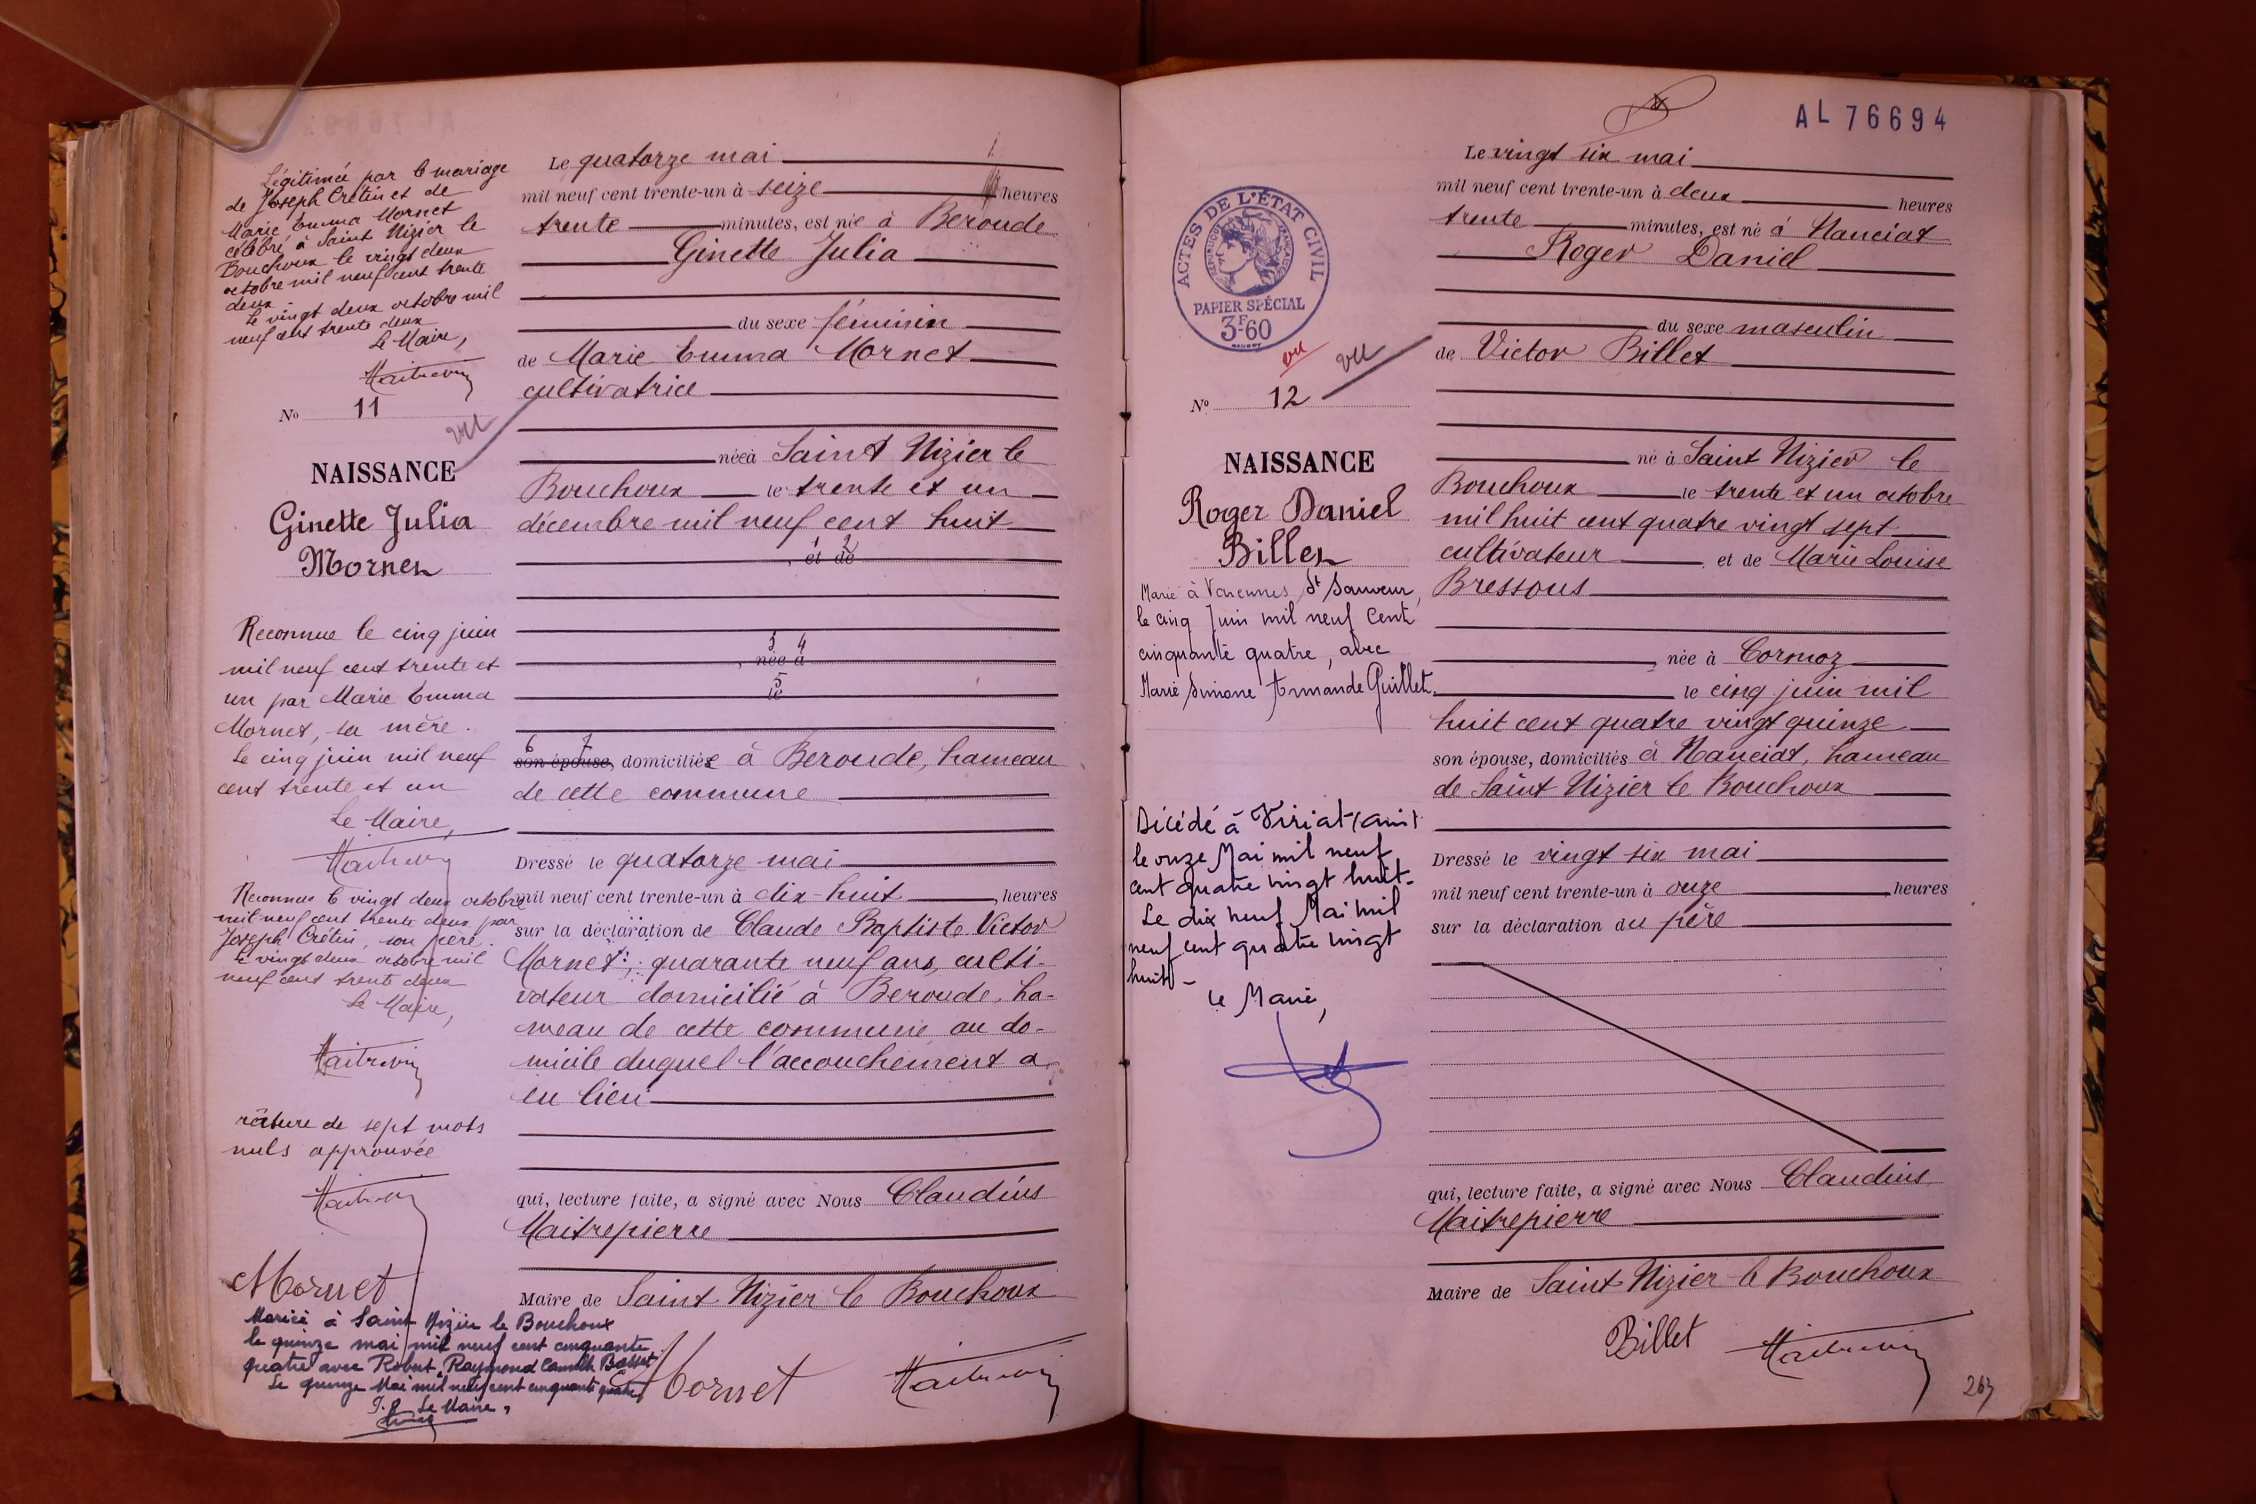 Légitimée par le mariage
de Joseph Crétin et de
Marie Emma Mornet
célébré à Saint Nizier le
Bouchoux le vingt deux
octobre mil neuf cent trente
deux
Le vingt deux octobre mil
neuf cent trente deux
Le Maire,
No 11
vu
NAISSANCE
Ginette Julia
Mornet
Reconnue le cinq juin
mil neuf cent trente et
un par Marie Emma
Mornet, sa mère.
Le cinq juin mil neuf
cent trente et un
Le Maire,
Reconnue le vingt deux octobre
mil neuf cent trente deux par
Joseph Crétin, son père.
Le vingt deux octobre mil
neuf cent trente deux
Le Maire,
râture de sept mots
nuls approuvée
Mornet
Mariée à Saint Nizier le Bouchoux
le quinze mai mil neuf cent cinquante
quatre avec Robert, Raymond Camille
Le quinze Mai mil neuf cent cinquante quatre
Le Maire,
Le quatorze mai
mil neuf cent trente-un à seize heures
trente minutes, est née à Beroude
Ginette Julia
du sexe féminin
de Marie Emma Mornet
cultivatrice
née à Saint Nizier le
Bouchoux le trente et un
décembre mil neuf cent huit
1 2
, et de
3 4
, née à
5
le
6 7
son épouse, domiciliée à Beroude, hameau
de cette commune
Dressé le quatorze mai
mil neuf cent trente-un à dix-huit heures
sur la déclaration de Claude Baptiste Victor
Mornet, quarante neuf ans, culti-
vateur domicilié à Beroude, ha-
meau de cette commune au do-
micile duquel l'accouchement a
eu lieu
qui, lecture faite, a signé avec Nous Claudius
Maitrepierre
Maire de Saint Nizier le Bouchoux
Mornet
AL 76694
ACTES DE L'ÉTAT CIVIL
RÉPUBLIQUE FRANÇAISE
PAPIER SPÉCIAL
3F-60
vu
vu
No 12
NAISSANCE
Roger Daniel
Billet
Marié à Varennes St Sauveur,
le cinq Juin mil neuf cent
cinquante quatre, avec
Marie Simone Armande Guillet.
Décédé à Viriat (Ain)
le onze Mai mil neuf
cent quatre vingt huit-
Le dix neuf Mai mil
neuf cent quatre vingt
huit-
Le Maire,
Le vingt six mai
mil neuf cent trente-un à deux heures
trente minutes, est né à Nanciat
Roger Daniel
du sexe masculin
de Victor Billet
né à Saint Nizier le
Bouchoux le trente et un octobre
mil huit cent quatre vingt sept
cultivateur et de Marie Louise
Bressous
, née à Cormoz
le cinq juin mil
huit cent quatre vingt quinze
son épouse, domiciliés à Nanciat, hameau
de Saint Nizier le Bouchoux
Dressé le vingt six mai
mil neuf cent trente-un à onze heures
sur la déclaration du père
qui, lecture faite, a signé avec Nous Claudius
Maitrepierre
Maire de Saint Nizier le Bouchoux
Billet
263